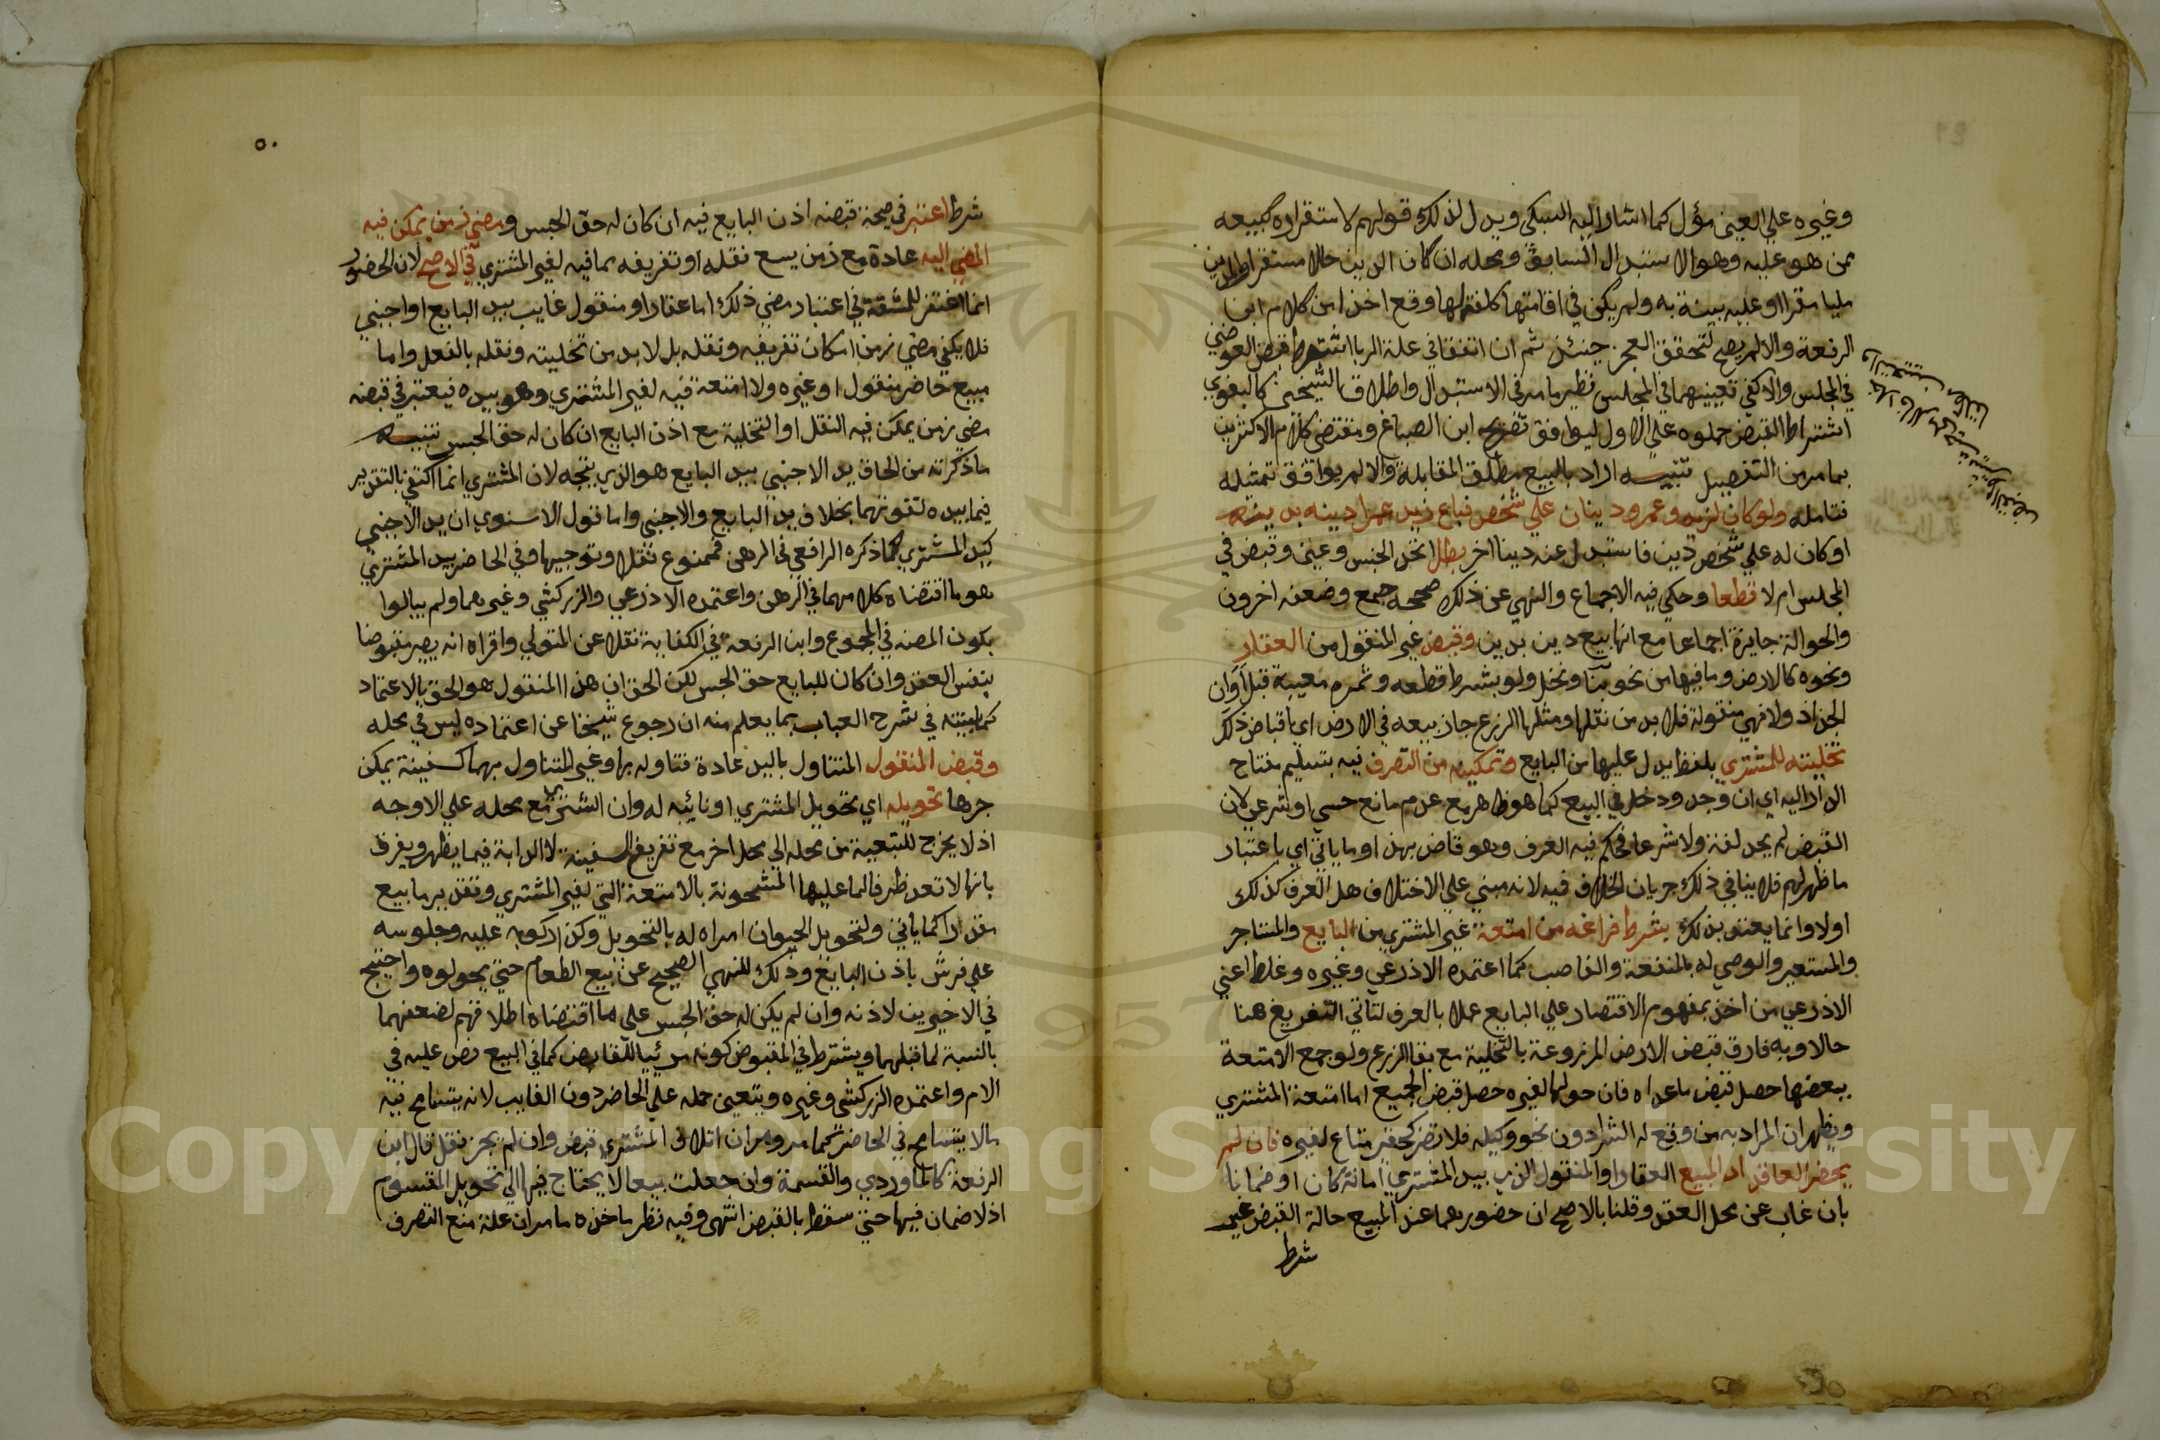 وغيره علي العين مؤل كما اشار اليه السبكي ويدل لذلك قولهم لاستقراره كبيعه
ممن هو عليه وهو الاستبدال السابق ومحله ان كان الدين حالا مستقرا والمدين
مليا مقرا او عليه بينة به ولم يكن في اقامتها كلفة لها وقع اخذا من كلام ابن
الرفعة والا لم يصح لتحقق العجز حينئذ ثم ان اتفقا في علة الربا اشترط قبض العوضين
في المجلس والا كفي تعيينهما في المجلس نظير ما مر في الاستبدال واطلاق الشيخين كالبغوي
اشتراط القبض حملوه علي الاول ليوافق تصريح ابن الصباغ ومقتضي كلام الاكثرين
بما مر من التفصيل تنبيه اراد بالبيع مطلق المقابلة والا لم يوافق تمثيله
فتامله ولو كان لزيد وعمرو دينان علي شخص فباع زيد عمرا دينه بدينه
او كان له علي شخص دين فاستبدل عنه دينا اخر بطل اتحد الجنس وعين وقبض في
المجلس ام لا قطعا وحكي فيه الاجماع والنهي عن ذلك صححه جمع وضعفه اخرون
والحوالة جايزة اجماعا مع انها بيع دين بدين وقبض غير المنقول من العقار
ونحوه كالارض وما فيها من نحو بنا ونخل ولو بشرط قطعه وثمرة مبيعة قبل اوان
الجذاذ والا فهي منقولة فلا بد من نقلها ومثلها الزرع جاز بيعه في الارض اي اقباض ذلك
تخليته للمشتري بلفظ يدل عليها من البايع وتمكينه من التصرف فيه بتسليم مفتاح
الدار اليه اي ان وجد ودخل في البيع كما هو ظاهر مع عدم مانع حسي او شرعي لان
القبض لم يحد لغة ولا شرعا فحكم فيه العرف وهو قاض بهذا وما ياتي اي باعتبار
ما ظهر لهم فلا ينافي ذلك جريان الخلاف فيه لانه مبني علي الاختلاف هل العرف كذلك
او لا وانما يعتد بذلك بشرط فراغه من امتعة غير المشتري من البايع والمستاجر
والمستعير والموصي له بالمنفعة والغاصب كما اعتمده الاذرعي وغيره وغلط اعني
الاذرعي من اخذ بمفهوم الاقتصار علي البايع عملا بالعرف لتاتي التفريغ هنا
حالا وبه فارق قبض الارض المزروعة بالتخلية مع بقا الزرع ولو جمع الامتعة
ببعضها حصل قبض ما عداه فان حولها لغيره حصل قبض الجميع اما امتعة المشتري
ويظهر ان المراد به من وقع له الشرا دون نحو وكيله فلا تضر كحقير متاع لغيره فان لم
يحضر العاقدان المبيع العقار او المنقول الذي بيد المشتري امانة كان او ضمانا
بان غاب عن محل العقد وقلنا بالاصح ان حضورهما عند المبيع حالة القبض غير
شرط
٥٠
شرط اعتبر في صحة قبضه اذن البايع فيه ان كان له حق الحبس ومضي زمن يمكن فيه
المضي اليه عادة مع زمن يسع نقله او تفريغه مما فيه لغير المشتري في الاصح لان الحضور
انما اغتفر للمشقة في اعتبار مضي ذلك اما عقار او منقول غايب بيد البايع او اجنبي
فلا يكفي مضي زمن امكان تفريغه ونقله بل لا بد من تخليته ونقله بالفعل واما
مبيع حاضر منقول او غيره ولا امتعة فيه لغير المشتري وهو بيده فيعتبر في قبضه
مضي زمن يمكن فيه النقل او التخلية مع اذن البايع ان كان له حق الحبس تنبيه
ما ذكرته من الحاق يد الاجنبي بيد البايع هو الذي يتجه لان المشتري انما اكتفي بالتقدير
فيما بيده لقوتهما بخلاف يد البايع والاجنبي واما قول الاسنوي ان يد الاجنبي
كيد المشتري كما ذكره الرافعي في الرهن فممنوع نقلا وتوجيها وفي الحاضر بيد المشتري
هو ما اقتضاه كلامهما في الرهن واعتمده الاذرعي والزركشي وغيرهما ولم يبالوا
بكون المصنف في المجموع وابن الرفعة في الكفاية نقلا عن المتولي واقراه انه يصير مقبوضا
بنفس العقد وان كان للبايع حق الحبس لكن الحق ان هذا المنقول هو الحق بالاعتماد
كما بينته في شرح العباب بما يعلم منه ان رجوع شيخنا عن اعتماده ليس في محله
وقبض المنقول المتناول باليد عادة فتناوله بها وغير المتناول بهما كسفينة يمكن
جرها تحويله اي تحويل المشتري او نائبه له وان اشتري مع محله علي الاوجه
اذ لا يخرج للتبعية من محله الي محل اخر مع تفريغ السفينة لا الدابة فيما يظهر ويفرق
بانها لا تعد ظرفا لما عليها المشحونة بالامتعة التي لغير المشتري وتقدير ما بيع
مقدرا كما ياتي ولتحويل الحيوان امراه له بالتحويل وكذا ركوبه عليه وجلوسه
علي فرش باذن البايع وذلك للنهي الصحيح عن بيع الطعام حتي يحولوه واحتيج
في الاخيرين لاذنه وان لم يكن له حق الحبس علي ما اقتضاه اطلاقهم لضعفهما
بالنسبة لما قبلهما ويشترط في المقبوض كونه مرئيا للقابض كما في البيع نص عليه في
الام واعتمده الزركشي وغيره ويتعين حمله علي الحاضر دون الغايب لانه يتسامح فيه
ما لا يتسامح في الحاضر كما مر ومر ان اتلاف المشتري قبض وان لم يجز نقل قال ابن
الرفعة كالماوردي والقسمة وان جعلت بيعا لا يحتاج فيها الي تحويل المقسوم
اذ لا ضمان فيها حتي سقط بالقبض انتهي وفيه نظر ماخذه ما مر ان علة منع التصرف